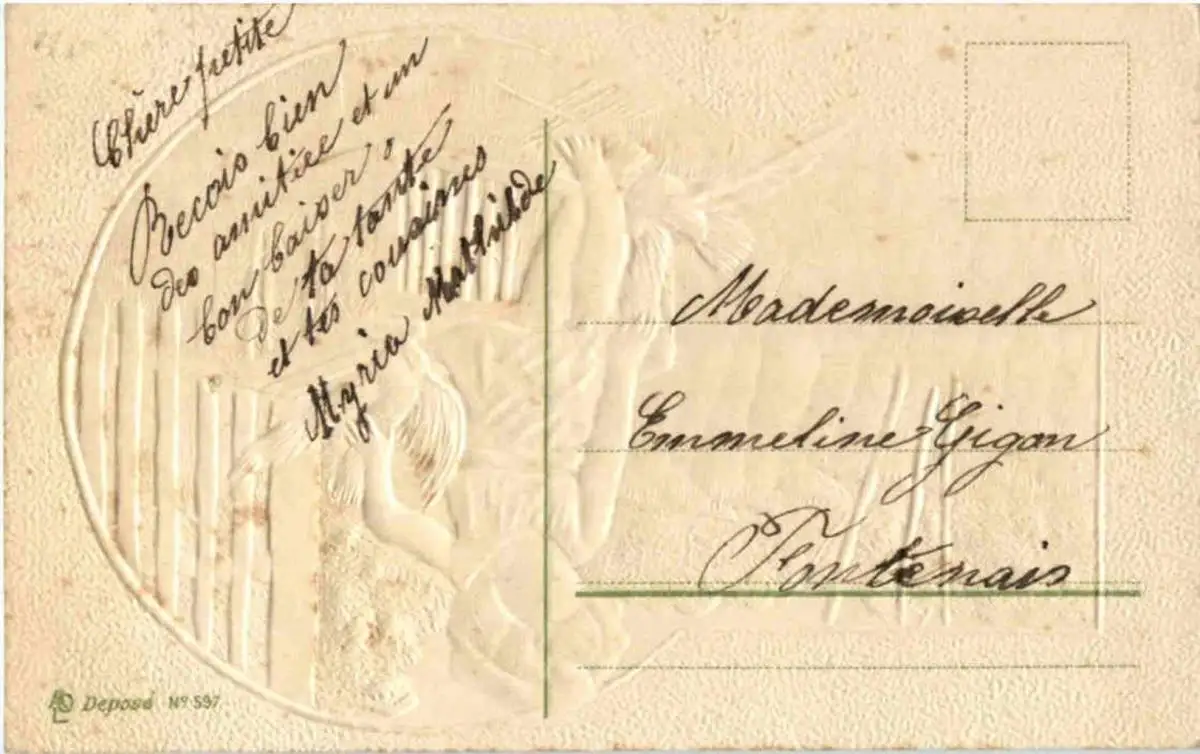 Chère petite
Recois bien
des amitiée et un
bon baiser
de ta tante
et tes cousines
Myria Mathilde
Mademoiselle
Emmeline Gigon
Fontenais
Deposé Nº 597